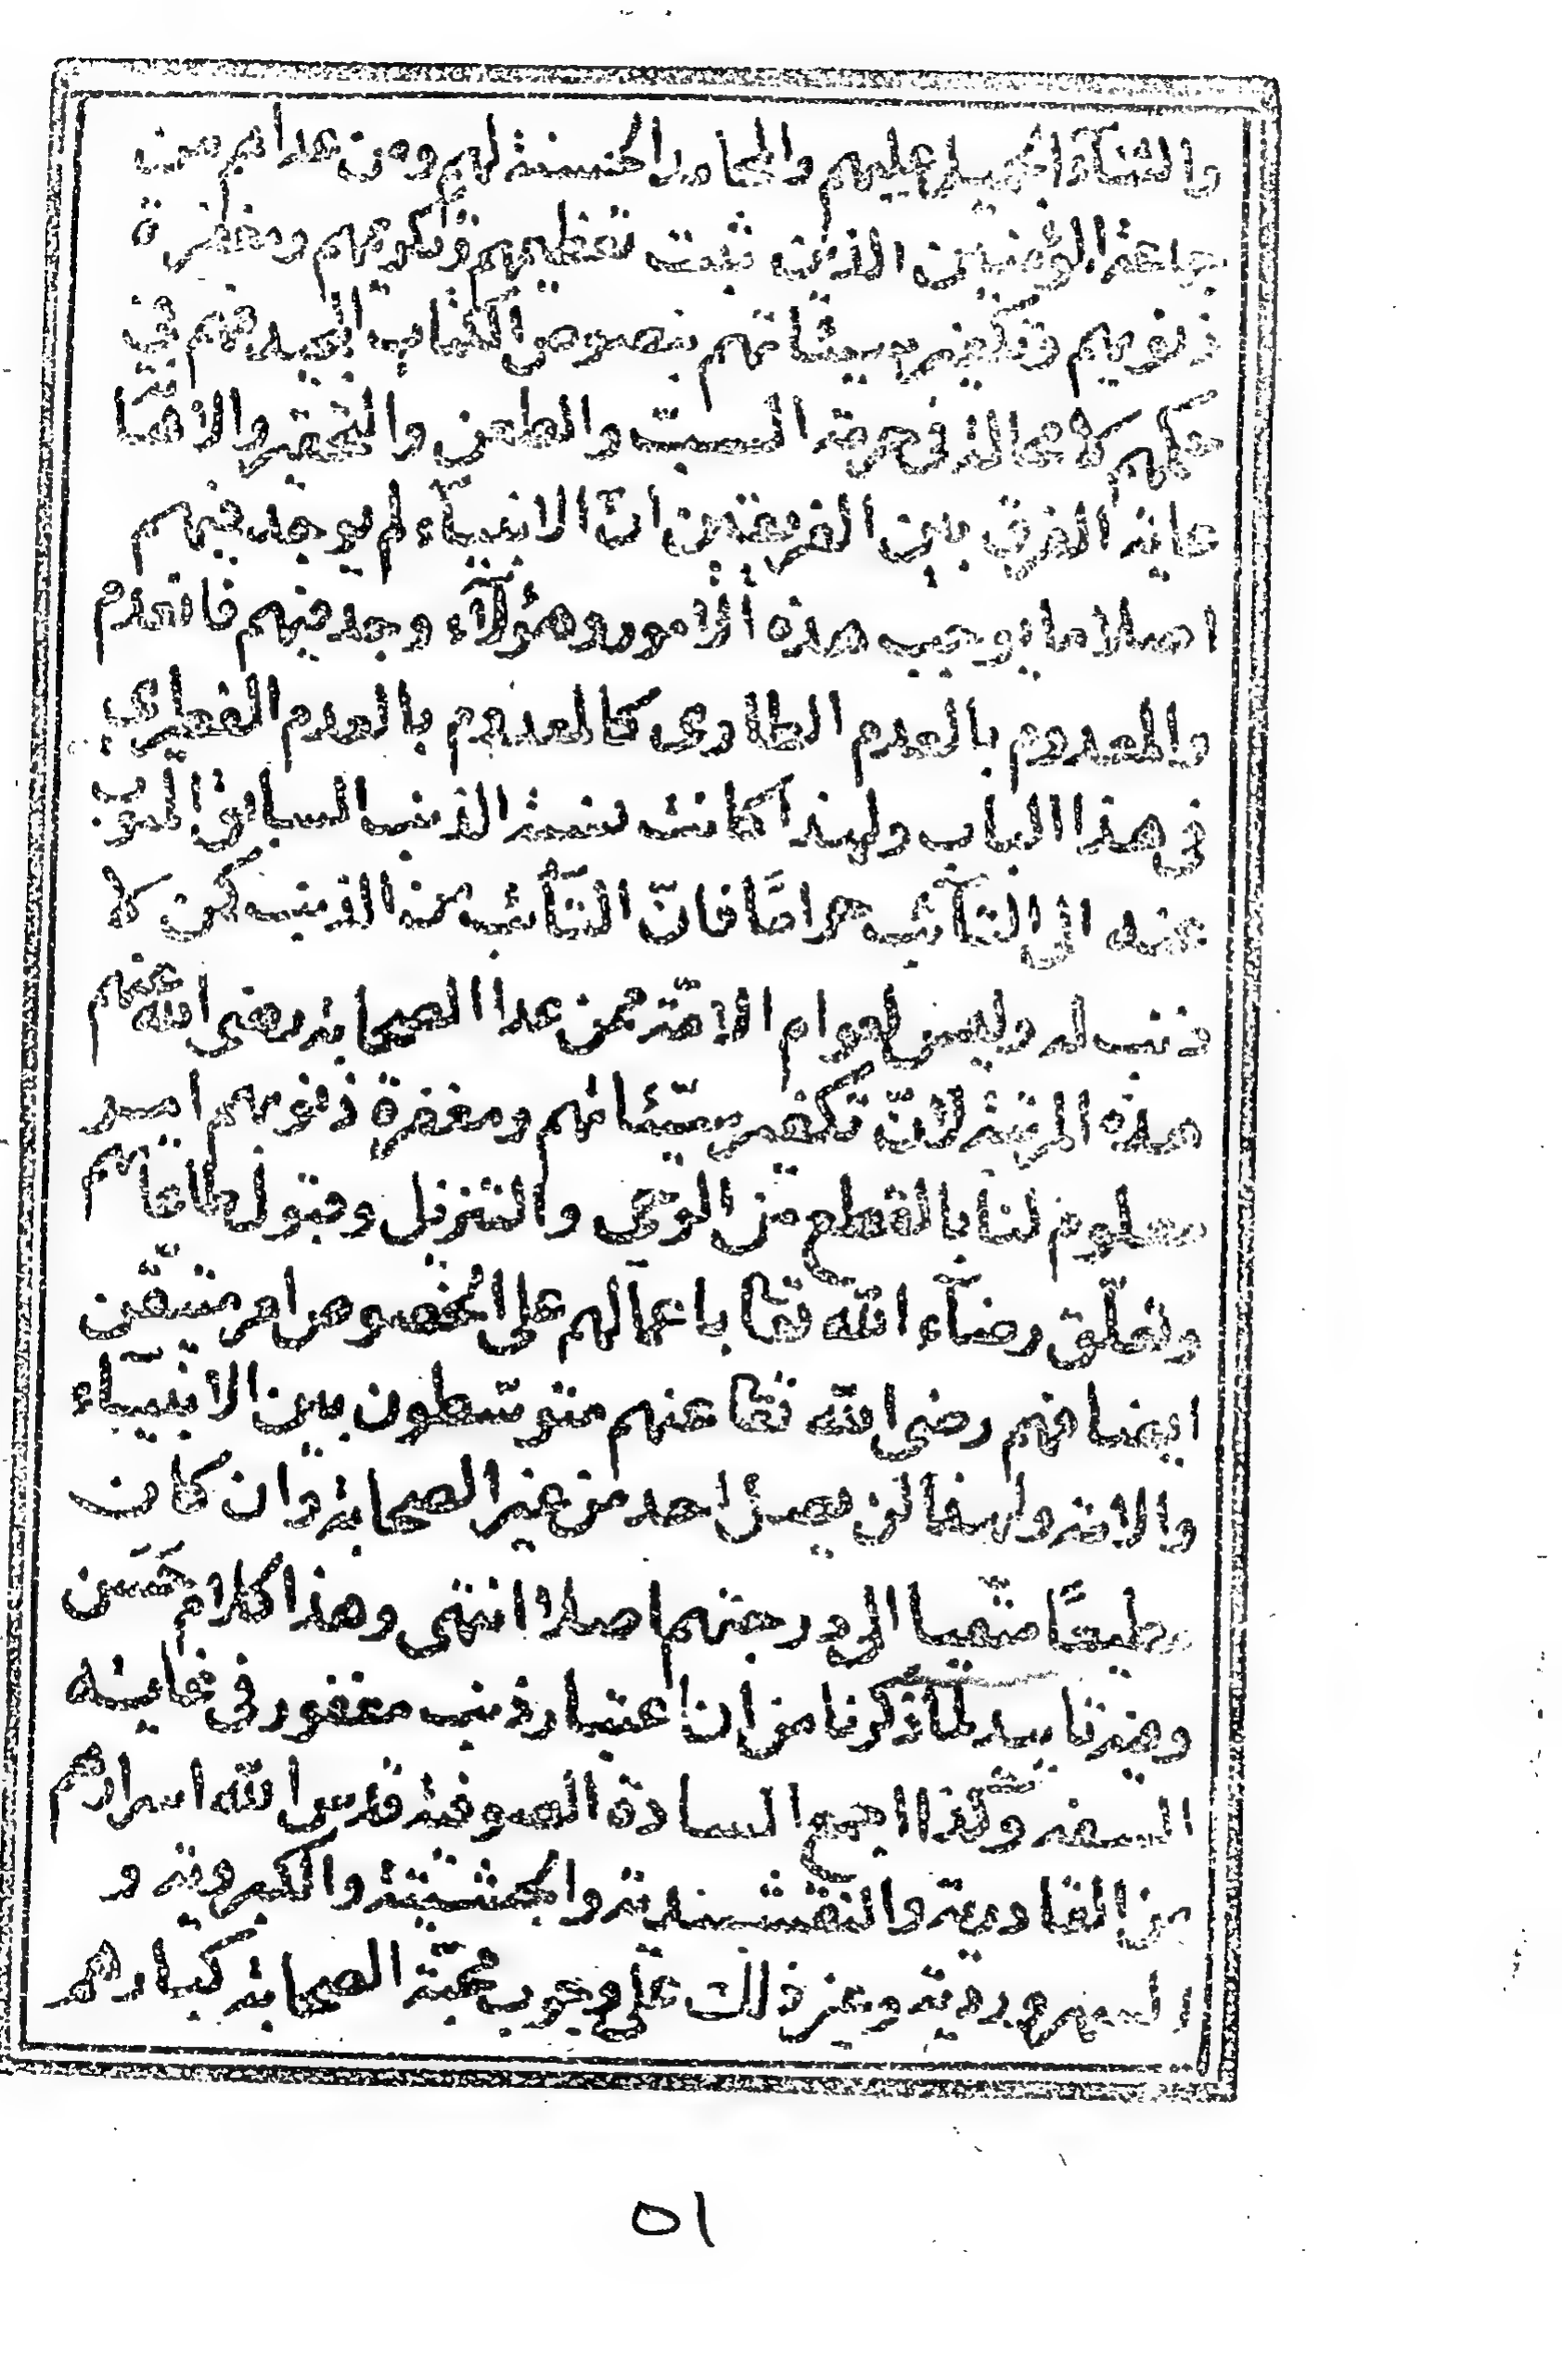 والثناء الجميل عليهم والمحامد الحسنة لهم ومن عداهم من
جماعة المؤمنين الذين ثبت تعظيمهم وتكريمهم ومغفرة
ذنوبهم وتكفير سيئاتهم بنصوص الكتاب المجيد فهم في
حكمهم لا محالة في حرمة السب والطعن والتحقير والاهانة
غاية الفرق بين الفريقين انّ الانبيآء لم يوجد فيهم
اصلا ما يوجب هذه الامور وهؤلآء وجد فيهم فانعدم
والمعدوم بالعدم الطارى كالمعدوم بالعدم الفطرى
في هذا الباب ولهذا كانت نسبة الذنب السابق المتوب
عنه الى التآئب حرامًا فانّ التّآئب من الذنب كمن لا
ذنب له وليس لعوام الامّة ممن عدا الصحابة رضى الله عنهم
هذه المرتبة لانّ تكفير سيّئاتهم ومغفرة ذنوبهم امر
معلوم لنا بالقطع من الوحى والتنزيل وقبول طاعاتهم
وتعلّق رضآء الله تعا باعمالهم على الخصوص امر متيقّن
ايضا فهم رضى الله تعا عنهم متوسّطون بين الانبيآء
والامة ولهذا لن يصل احد من غير الصحابة وان كان
مطيعًا متقيا الى درجتهم اصلا انتهى وهذا كلام حَسَن
وفيه تاييد لما ذكرنا من ان اعتبار ذنب مغفور في غاية
السفه وكذا اجمع السادة الصوفية قدس الله اسرارهم
من القادرية والنقشبندية والجشتية والكبروية و
السهروردية وغير ذلك على وجوب محبّة الصحابة كبارهم
٥١